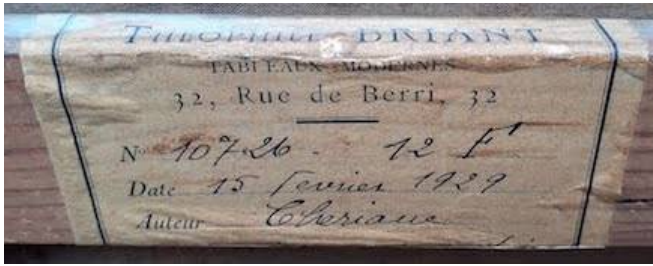 Théophile BRIANT
TABLEAUX MODERNES
32, Rue de Berri, 32
No 10726 - 12 F
Date 15 fevrier 1929
Auteur Cheriane